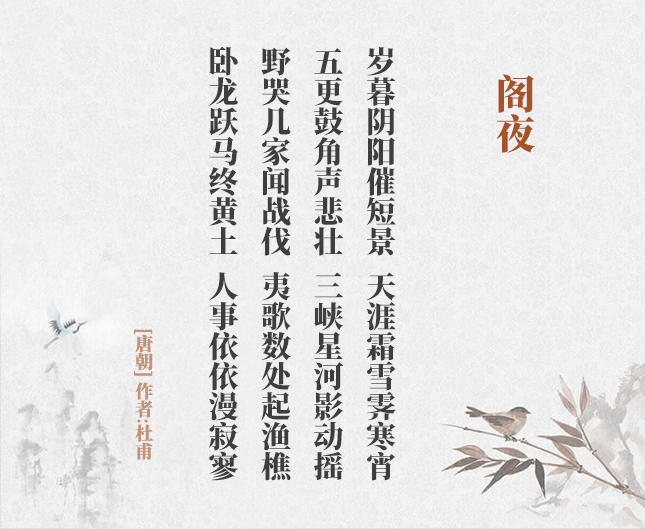 阁夜
岁暮阴阳催短景
天涯霜雪霁寒宵
五更鼓角声悲壮
三峡星河影动摇
野哭几家闻战伐
夷歌数处起渔樵
卧龙跃马终黄土
人事依依漫寂寥
[唐朝] 作者:杜甫